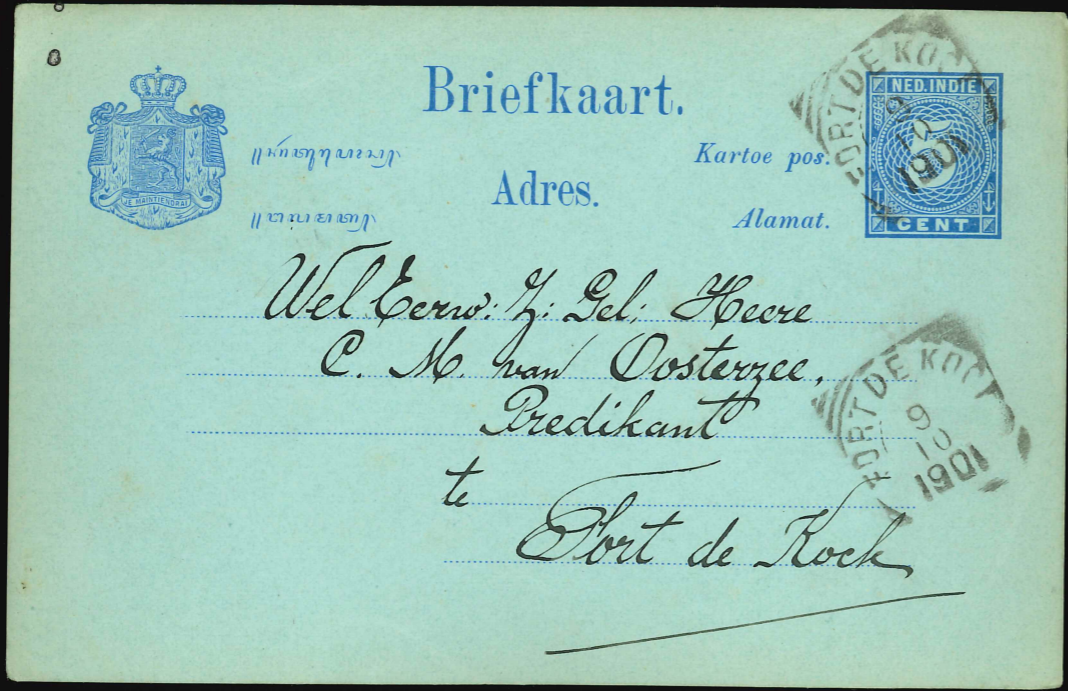 Briefkaart.
Kartoe pos.
Adres.
Alamat.
JE MAINTIENDRAI
NED. INDIE
5
CENT
FORT DE KOCK
9
10
1901
Wel Eerw: Z: Gel: Heere
C. M. van Oosterzee,
Predikant
te
Fort de Kock
FORT DE KOCK
9
10
1901